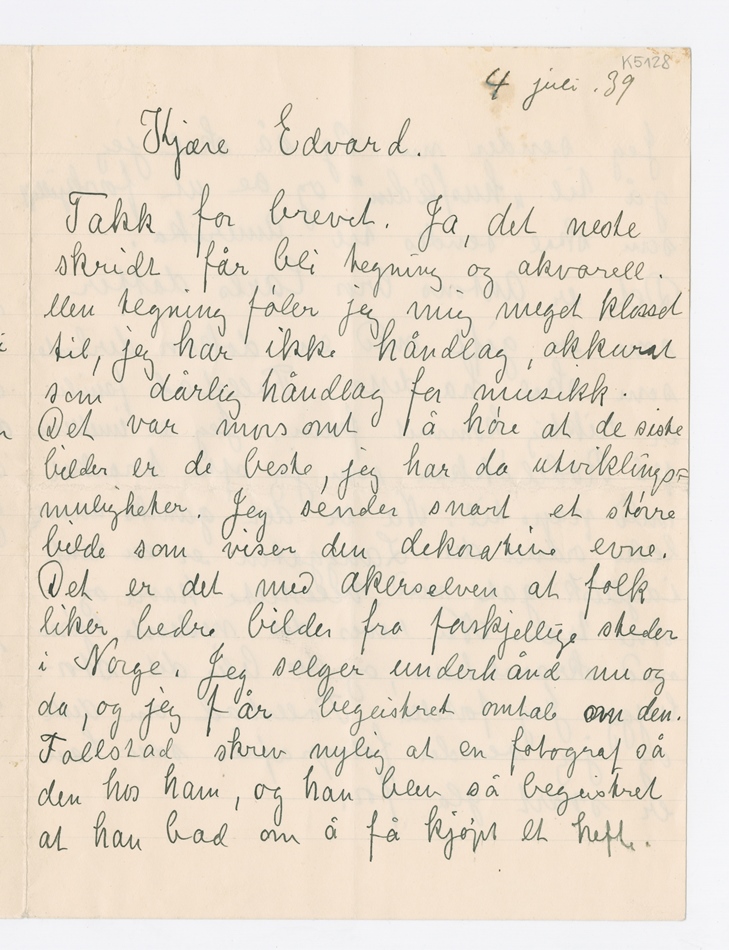 K5128
4 juli . 39
Kjære Edvard.
Takk for brevet. Ja, det neste
skridt får bli tegning og akvarell.
Men tegning føler jeg mig meget klosset
til, jeg har ikke håndlag, akkurat
som dårlig håndlag for musikk.
Det var morsomt å høre at de siste
bilder er de beste, jeg har da utviklings=
muligheter. Jeg sender snart et større
bilde som viser den dekorative evne.
Det er det med akerselven at folk
liker bedre bilder fra forskjellige steder
i Norge. Jeg selger underhånd nu og
da, og jeg får begeistret omtale om den.
Follestad skrev nylig at en fotograf så
den hos ham, og han blev så begeistret
at han bad om å få kjøpt et hefte.